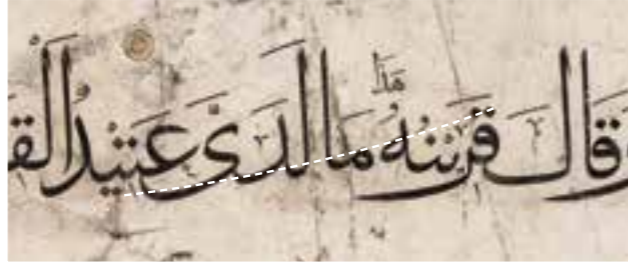 وقال قرينه هذا ما لدى عتيد الق